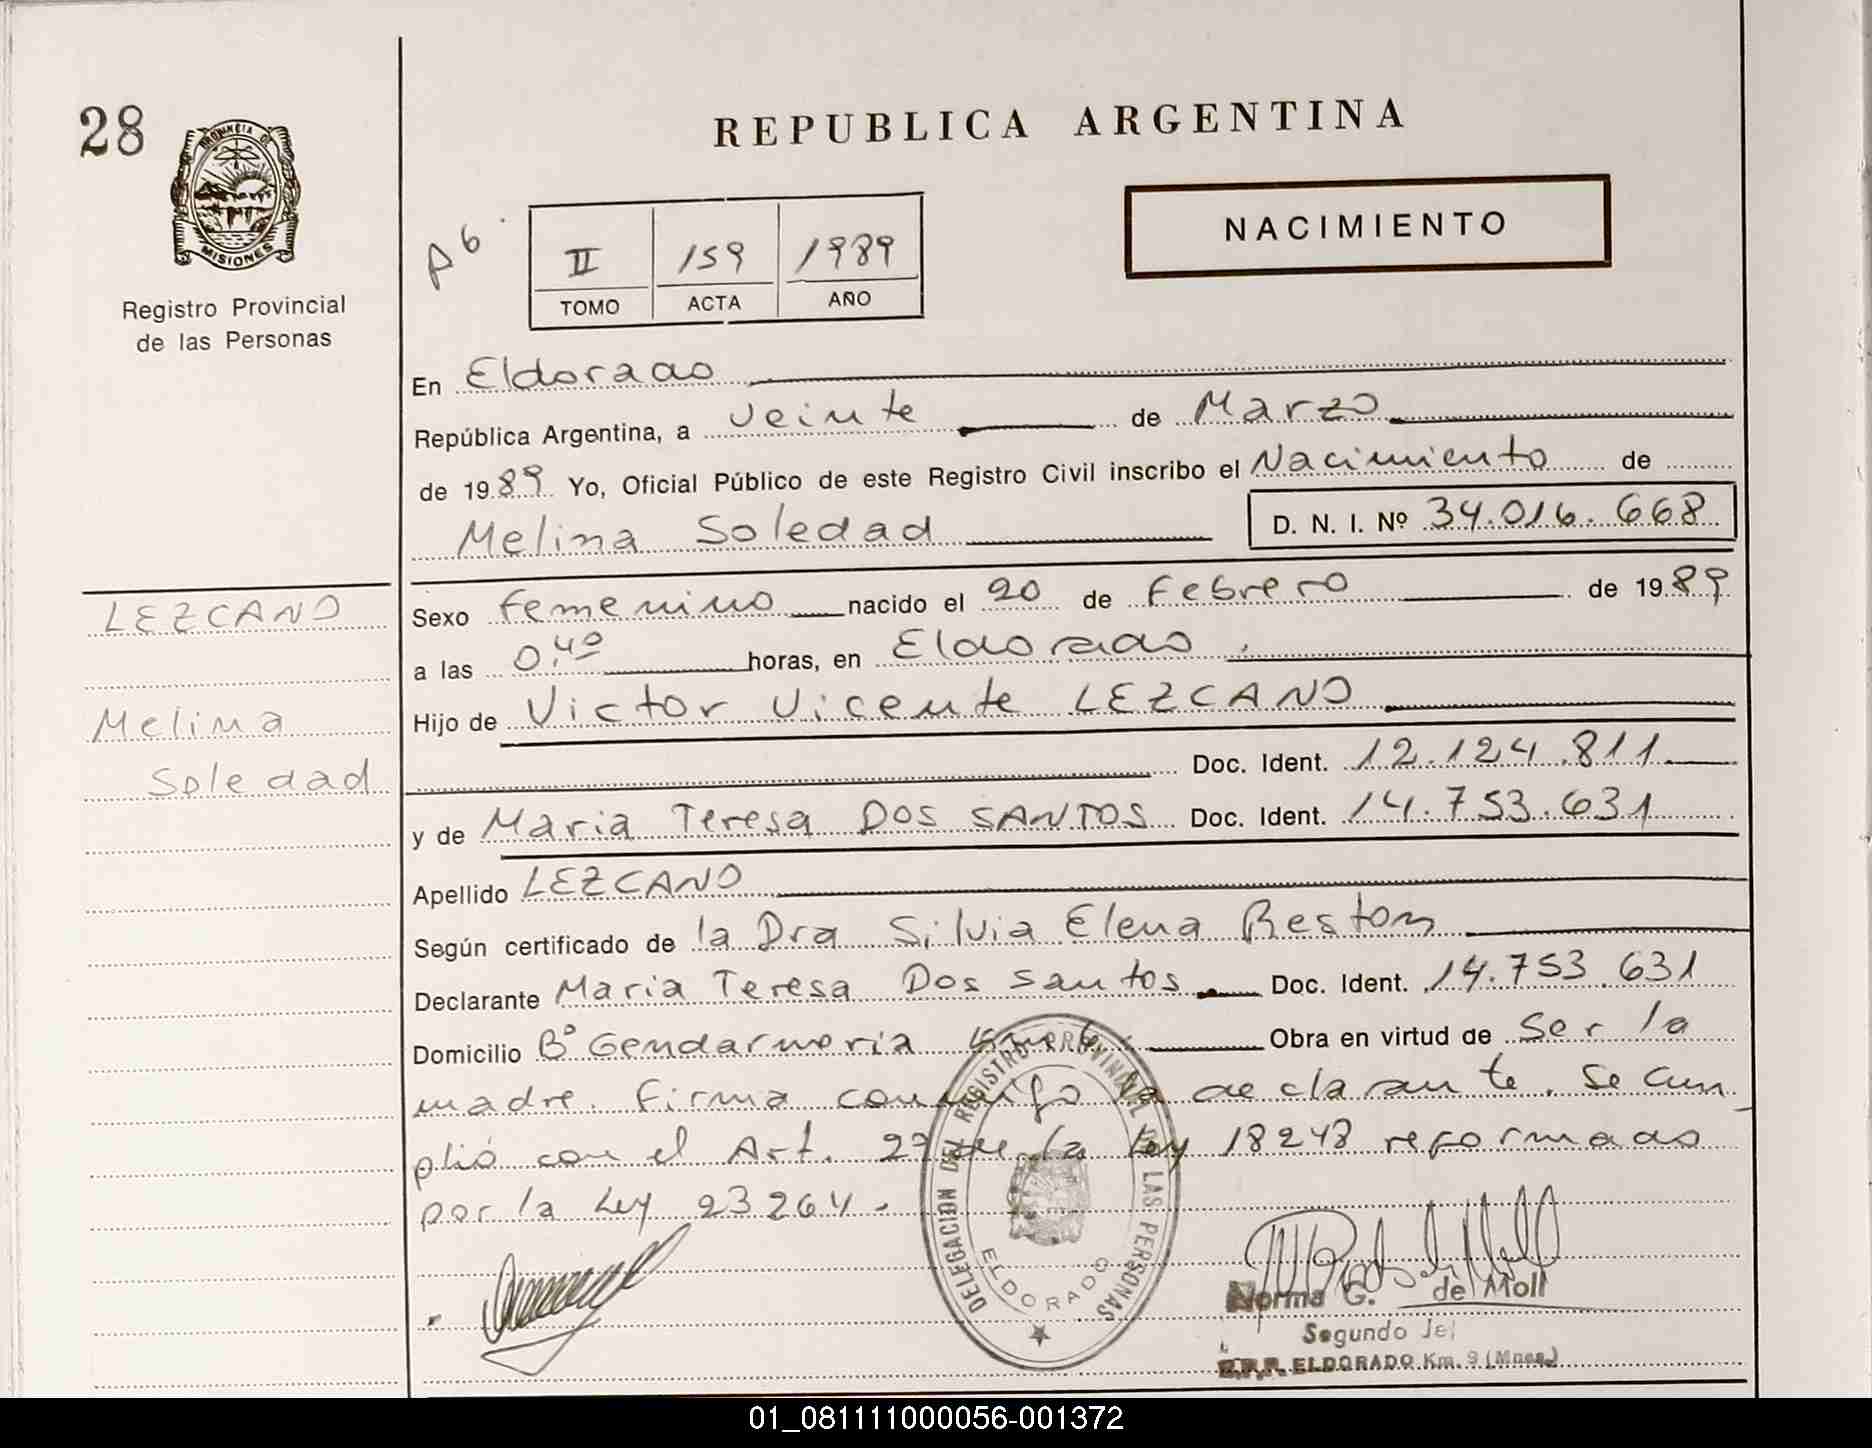 28
PROVINCIA DE
MISIONES
Registro Provincial
de las Personas
REPUBLICA ARGENTINA
NACIMIENTO
II 159 1989
TOMO ACTA AÑO
En Eldorado
República Argentina, a veinte de Marzo
de 1989 Yo, Oficial Público de este Registro Civil inscribo el Nacimiento de
Melina Soledad D. N. I. Nº 34.016.668
LEZCANO
Melina
Soledad
Sexo Femenino nacido el 20 de Febrero de 1989
a las 0,40 horas, en Eldorado.
Hijo de Victor Vicente LEZCANO
Doc. Ident. 12.124.811
y de Maria Teresa DOS SANTOS Doc. Ident. 14.753.631
Apellido LEZCANO
Según certificado de la Dra Silvia Elena Beston
Declarante Maria Teresa Dos Santos Doc. Ident. 14.753.631
Domicilio Bº Gendarmeria Obra en virtud de Ser la
madre. Firma conmigo la declarante. Se cum
plió con el Art. de la Ley 18248 reformado
por la Ley 23264.-
DELEGACION DEL REGISTRO PROVINCIAL DE LAS PERSONAS
ELDORADO
Norma G. de Moll
Segundo Jef
R.P.P. ELDORADO Km. 9 (Mnes.)
01_081111000056-001372